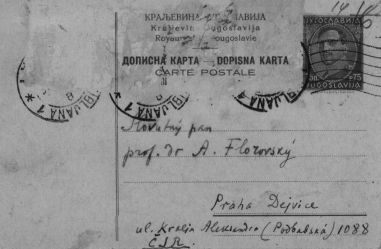 КРАЉЕВИНА ЈУГОСЛАВИЈА
Kraljevina Jugoslavija
Royaume Yougoslavie
ЈУГОСЛАВИЈА
ДОПИСНА КАРТА — DOPISNA KARTA
CARTE POSTALE
75
JUGOSLAVIJA
LJUBLJANA 1
LJUBLJANA 1
LJUBLJANA 1
Slovutný pan
prof. dr A. Florovský
Praha Dejvice
ul. Kralja Aleksandra (Podbabská) 1088
ČSR.